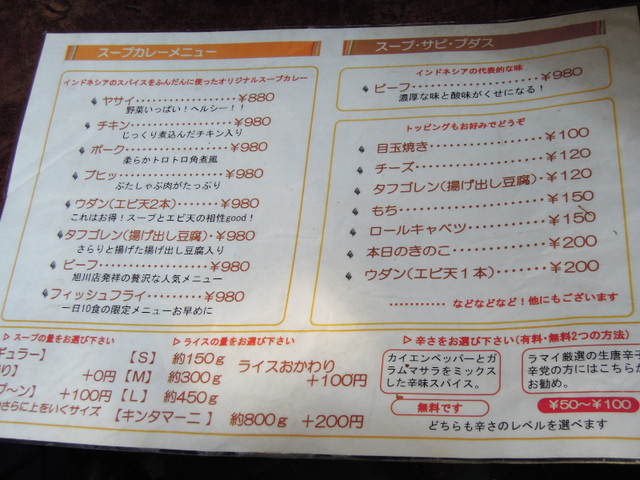 スープカレーメニュー
インドネシアのスパイスをふんだんに使ったオリジナルスープカレー
ヤサイ‥‥‥‥‥‥‥¥880
野菜いっぱい！ヘルシー！！
チキン‥‥‥‥‥‥‥¥980
じっくり煮込んだチキン入り
ポーク‥‥‥‥‥‥‥¥980
柔らかトロトロ角煮風
ブヒッ‥‥‥‥‥‥‥¥980
ぶたしゃぶ肉がたっぷり
ウダン(エビ天2本)‥‥¥980
これはお得！スープとエビ天の相性good！
タフゴレン(揚げ出し豆腐)・¥980
さらりと揚げた揚げ出し豆腐入り
ビーフ‥‥‥‥‥‥‥¥980
旭川店発祥の贅沢な人気メニュー
フィッシュフライ‥‥‥¥980
一日10食の限定メニューお早めに
スープ・サピ・プダス
インドネシアの代表的な味
ビーフ‥‥‥‥‥‥‥¥980
濃厚な味と酸味がくせになる！
トッピングもお好みでどうぞ
目玉焼き‥‥‥‥‥‥¥100
チーズ‥‥‥‥‥‥‥¥120
タフゴレン(揚げ出し豆腐)・¥120
もち‥‥‥‥‥‥‥‥¥150
ロールキャベツ‥‥‥‥¥150
本日のきのこ‥‥‥‥‥¥200
ウダン(エビ天１本)‥‥¥200
‥‥‥‥などなどなど！他にもございます
▷スープの量をお選び下さい
ギュラー】
り】 +0円
プ〜ン】 +100円
さらに上をいくサイズ
▷ライスの量をお選び下さい
【S】 約150g
【M】 約300g
【L】 約450g
ライスおかわり
+100円
【キンタマーニ】 約800g +200円
▷辛さをお選び下さい(有料・無料2つの方法)
カイエンペッパーとガ
ラムマサラをミックス
した辛味スパイス。
無料です
ラマイ厳選の生唐辛子
辛党の方にはこちらが
お勧め。
¥50〜¥100
どちらも辛さのレベルを選べます